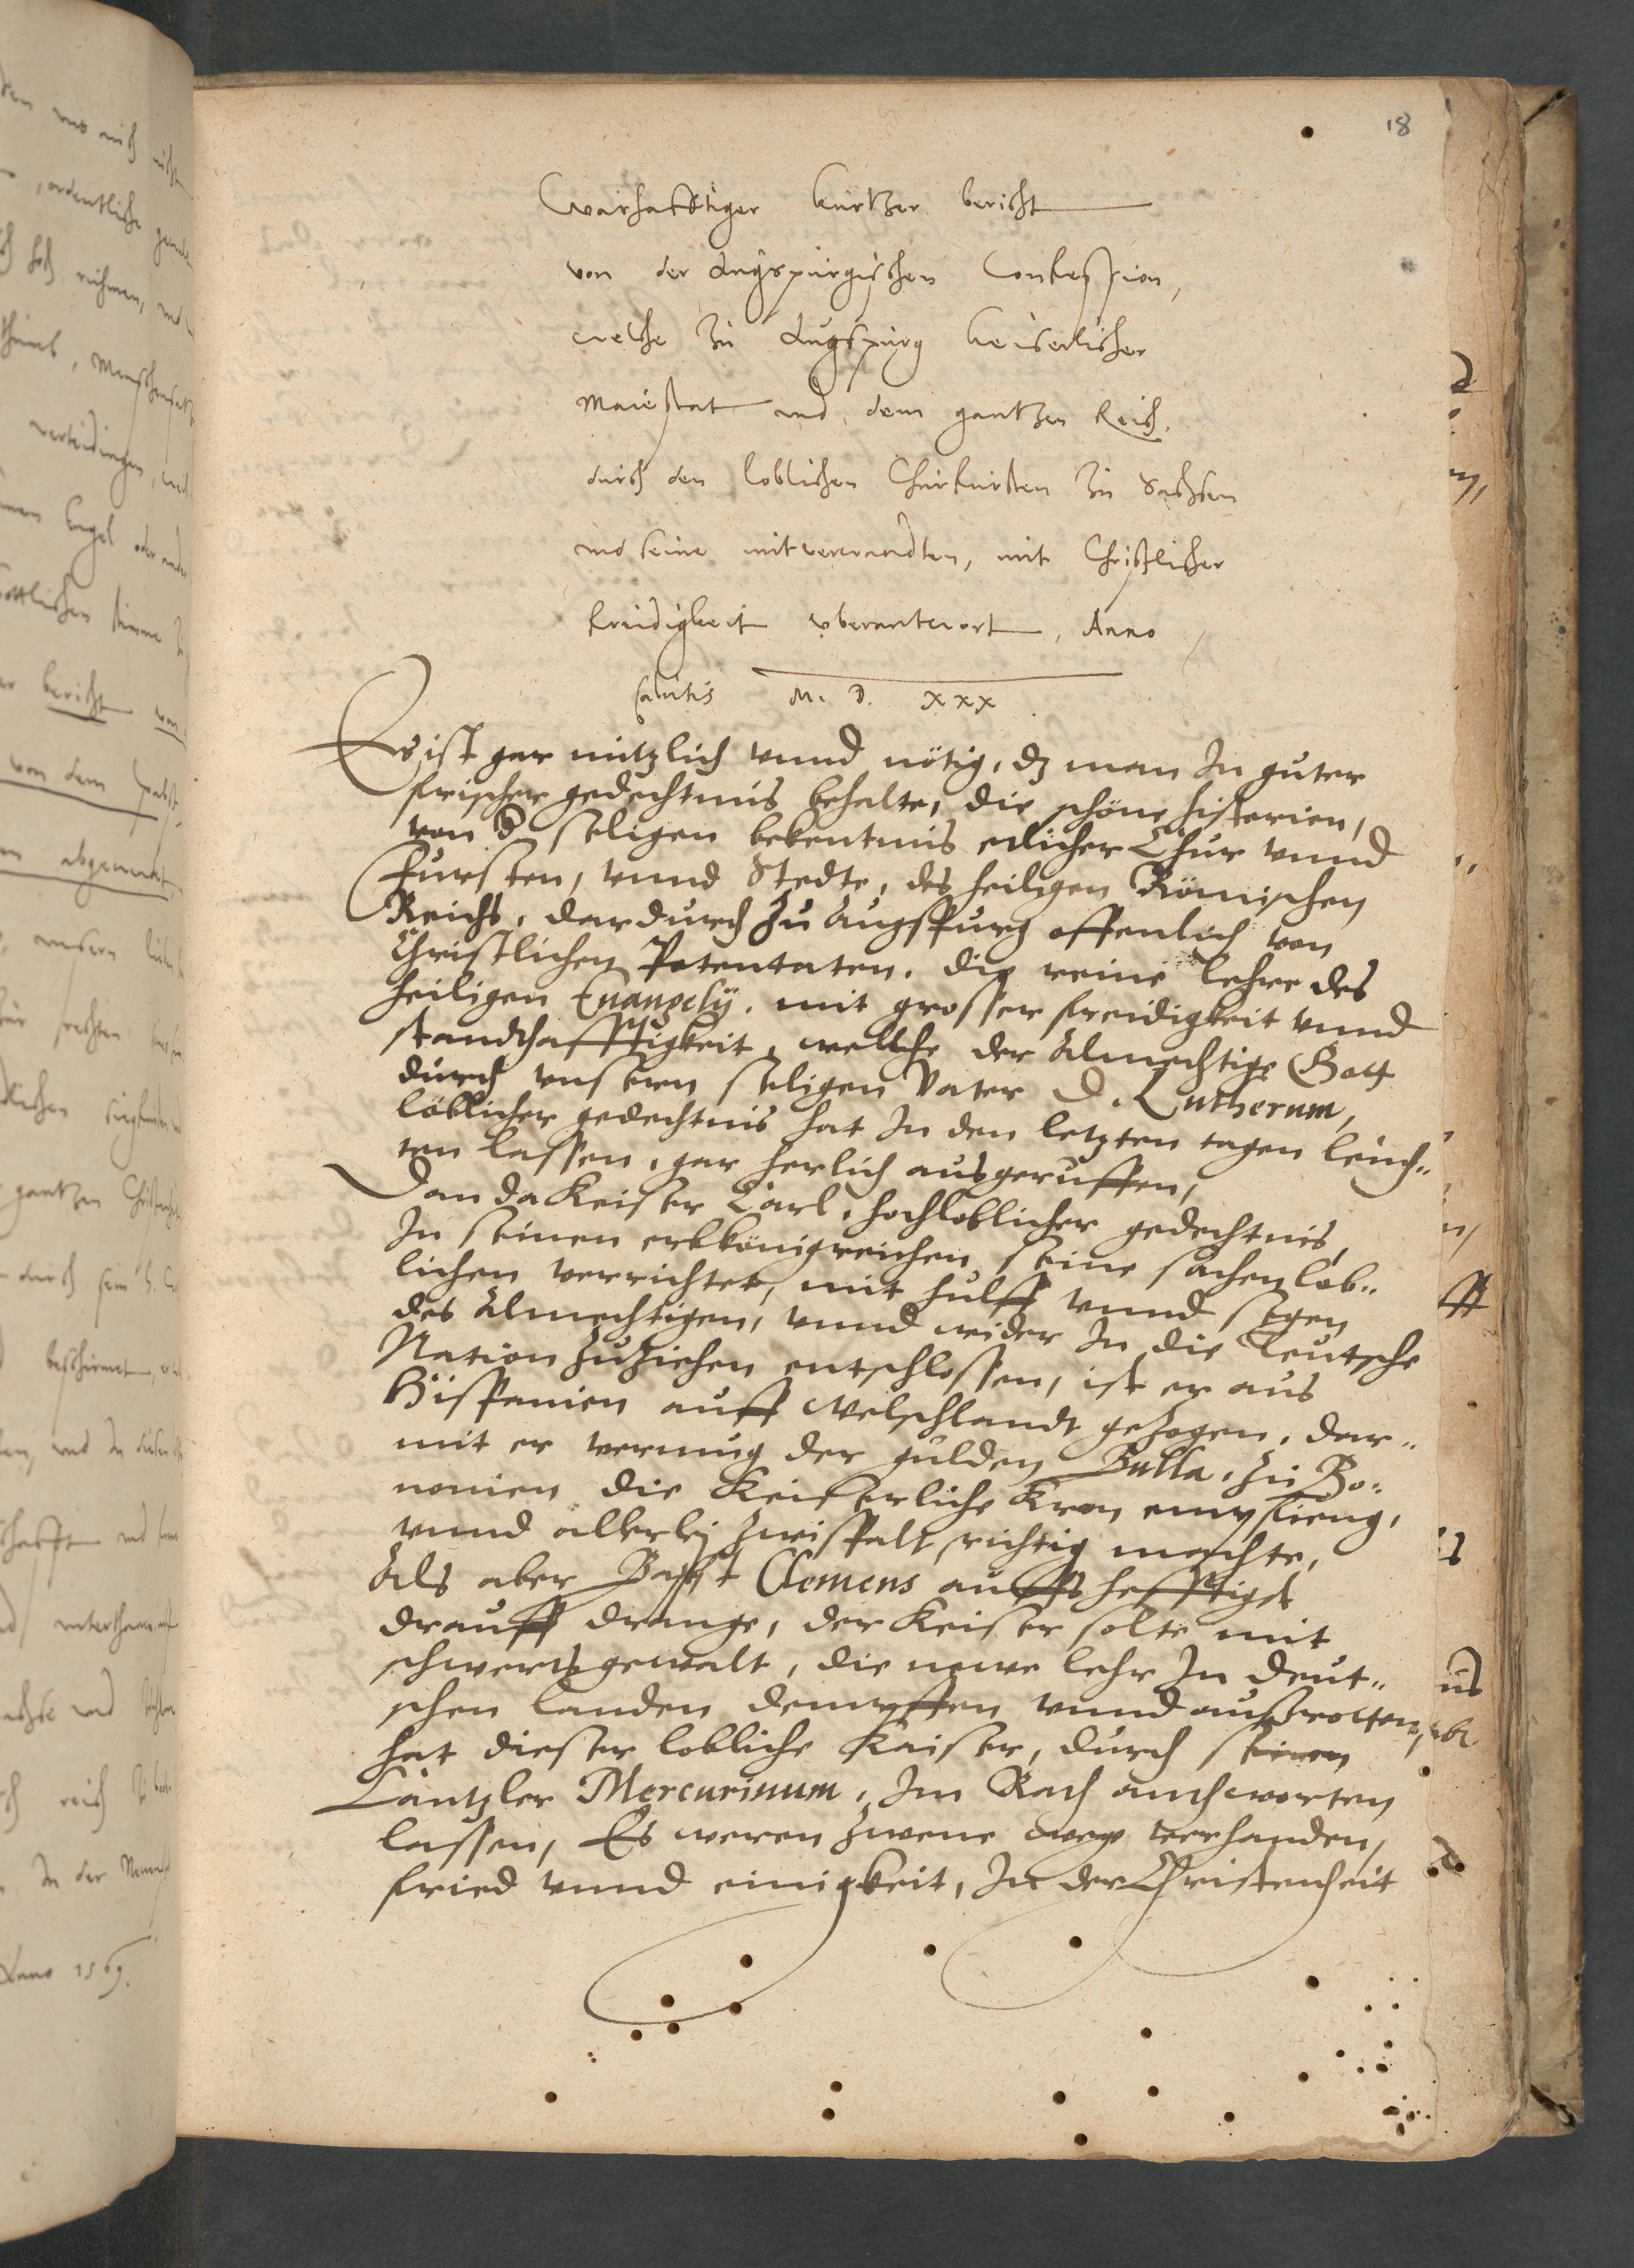 18
Warhafftiger kurtzer bericht
von der Augspurgischen Confession,
welche zu Augspurg keiserlicher
Maiestat und dem gantzen Reich.
durch den loblichen Churfursten zu Sachsen
und seine mitverwandten, mit Christlicher
freidigkeit uberantwort, Anno
salutis M. D. XXX
Es ist gar nützlich vnnd nötig, dz man In guter
frischer gedechtnis behalte, die schöne historien,
von d seligen bekentnis etlicher Chur vnnd
Fursten, vnnd Stedte, des heiligen Römischen
Reichs, dardurch zu Augspurg offenlich von
Christlichen Potentaten. die reine lehre des
heiligen Euangelij. mit grosser freidigkeit vnnd
standthafftigkeit, wellche der Almechtige Gott
durch vnsern seligen Vater D. Lutherum,
löblicher gedechtnis hat In den letzten tagen leuch„
ten lassen, gar herlich ausgeruffen,
Dan da Keiser Carl, hochloblicher gedechtnis,
In seinen erbkönigreichen seine sachen löb„
lichen verrichtet, mit hulff vnnd segen
des Almechtigen, vnnd wider In die Teutsche
Nation zuziehen entschlossen, ist er aus
Hispanien auff Welschlandt gezogen, dar„
mit er vermug der gulden Bulla, zu Bo„
nonien die Keiserliche Kron empfieng,
vnnd allerley zwispalt richtig machte,
Als aber Bapst Clemens auffs hefftigst
drauff drange, der Keiser solte mit
schwerts gewalt, die newe lehr In deut„
schen landen dempffen vnnd außrotten,
hat dieser lobliche Kaiser, durch seinen
Cantzler Mercurinum, Im Rath anthworten
lassen, Es weren zwene weg verhanden,
fried vnnd einigkeit, In der Christenheit